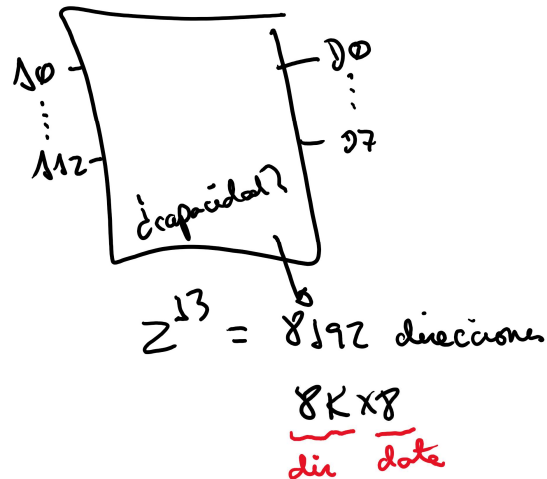 A0
D0
A12
D7
¿capacidad?
2^13 = 8192 direcciones
8K x 8
dir dato